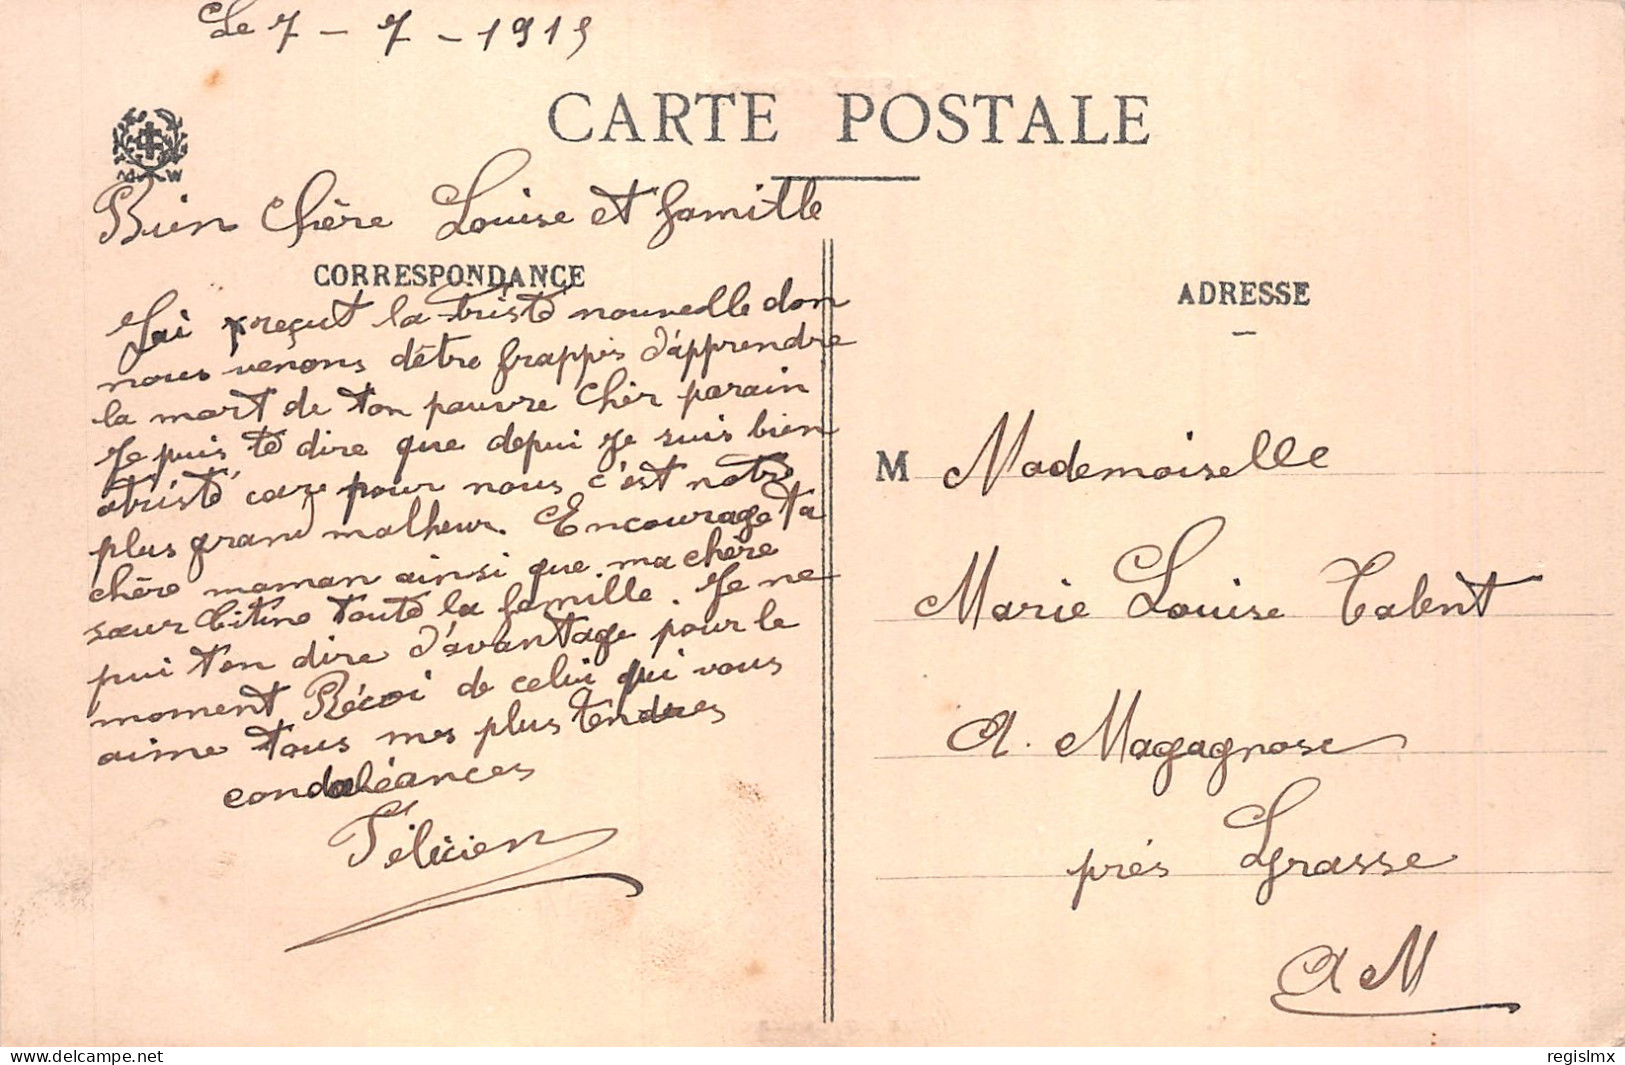 Le 7 - 7 - 1915
CARTE POSTALE
Bien Chère Louise et famille
CORRESPONDANCE
J'ai reçut la tristé nouvelle don
nous venons d'être frappis d'apprendre
la mort de ton pauvre Chèr parain
Je puis te dire que depui je suis bien
atristé care pour nous c'est notre
plus grand malheur. Encourage ta
chère maman ainsi que ma chère
sœur Titine toute la famille. Je ne
pui t'en dire d'avantage pour le
moment Récoi de celui qui vous
aime tous mes plus tendres
condoléances
Félicien
ADRESSE
M Mademoiselle
Marie Louise Talent
A. Magagnose
près Grasse
A M
M W
regislmx
delcampe.net